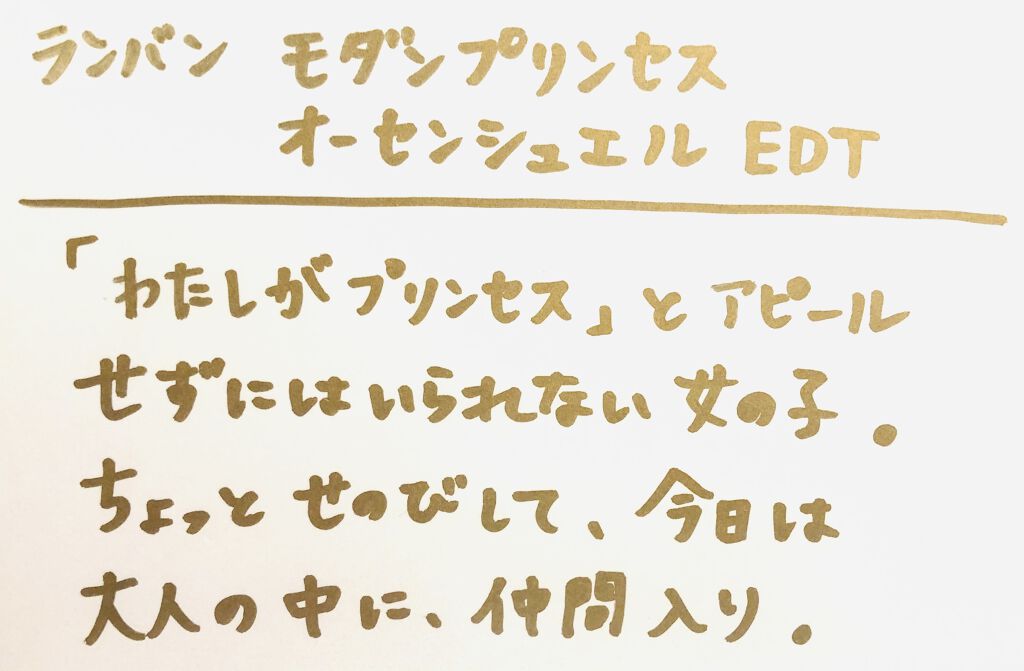 ランバン モダンプリンセス
オーセンシュエル EDT
「わたしがプリンセス」とアピール
せずにはいられない女の子.
ちょっとせのびして、今日は
大人の中に、仲間入り.